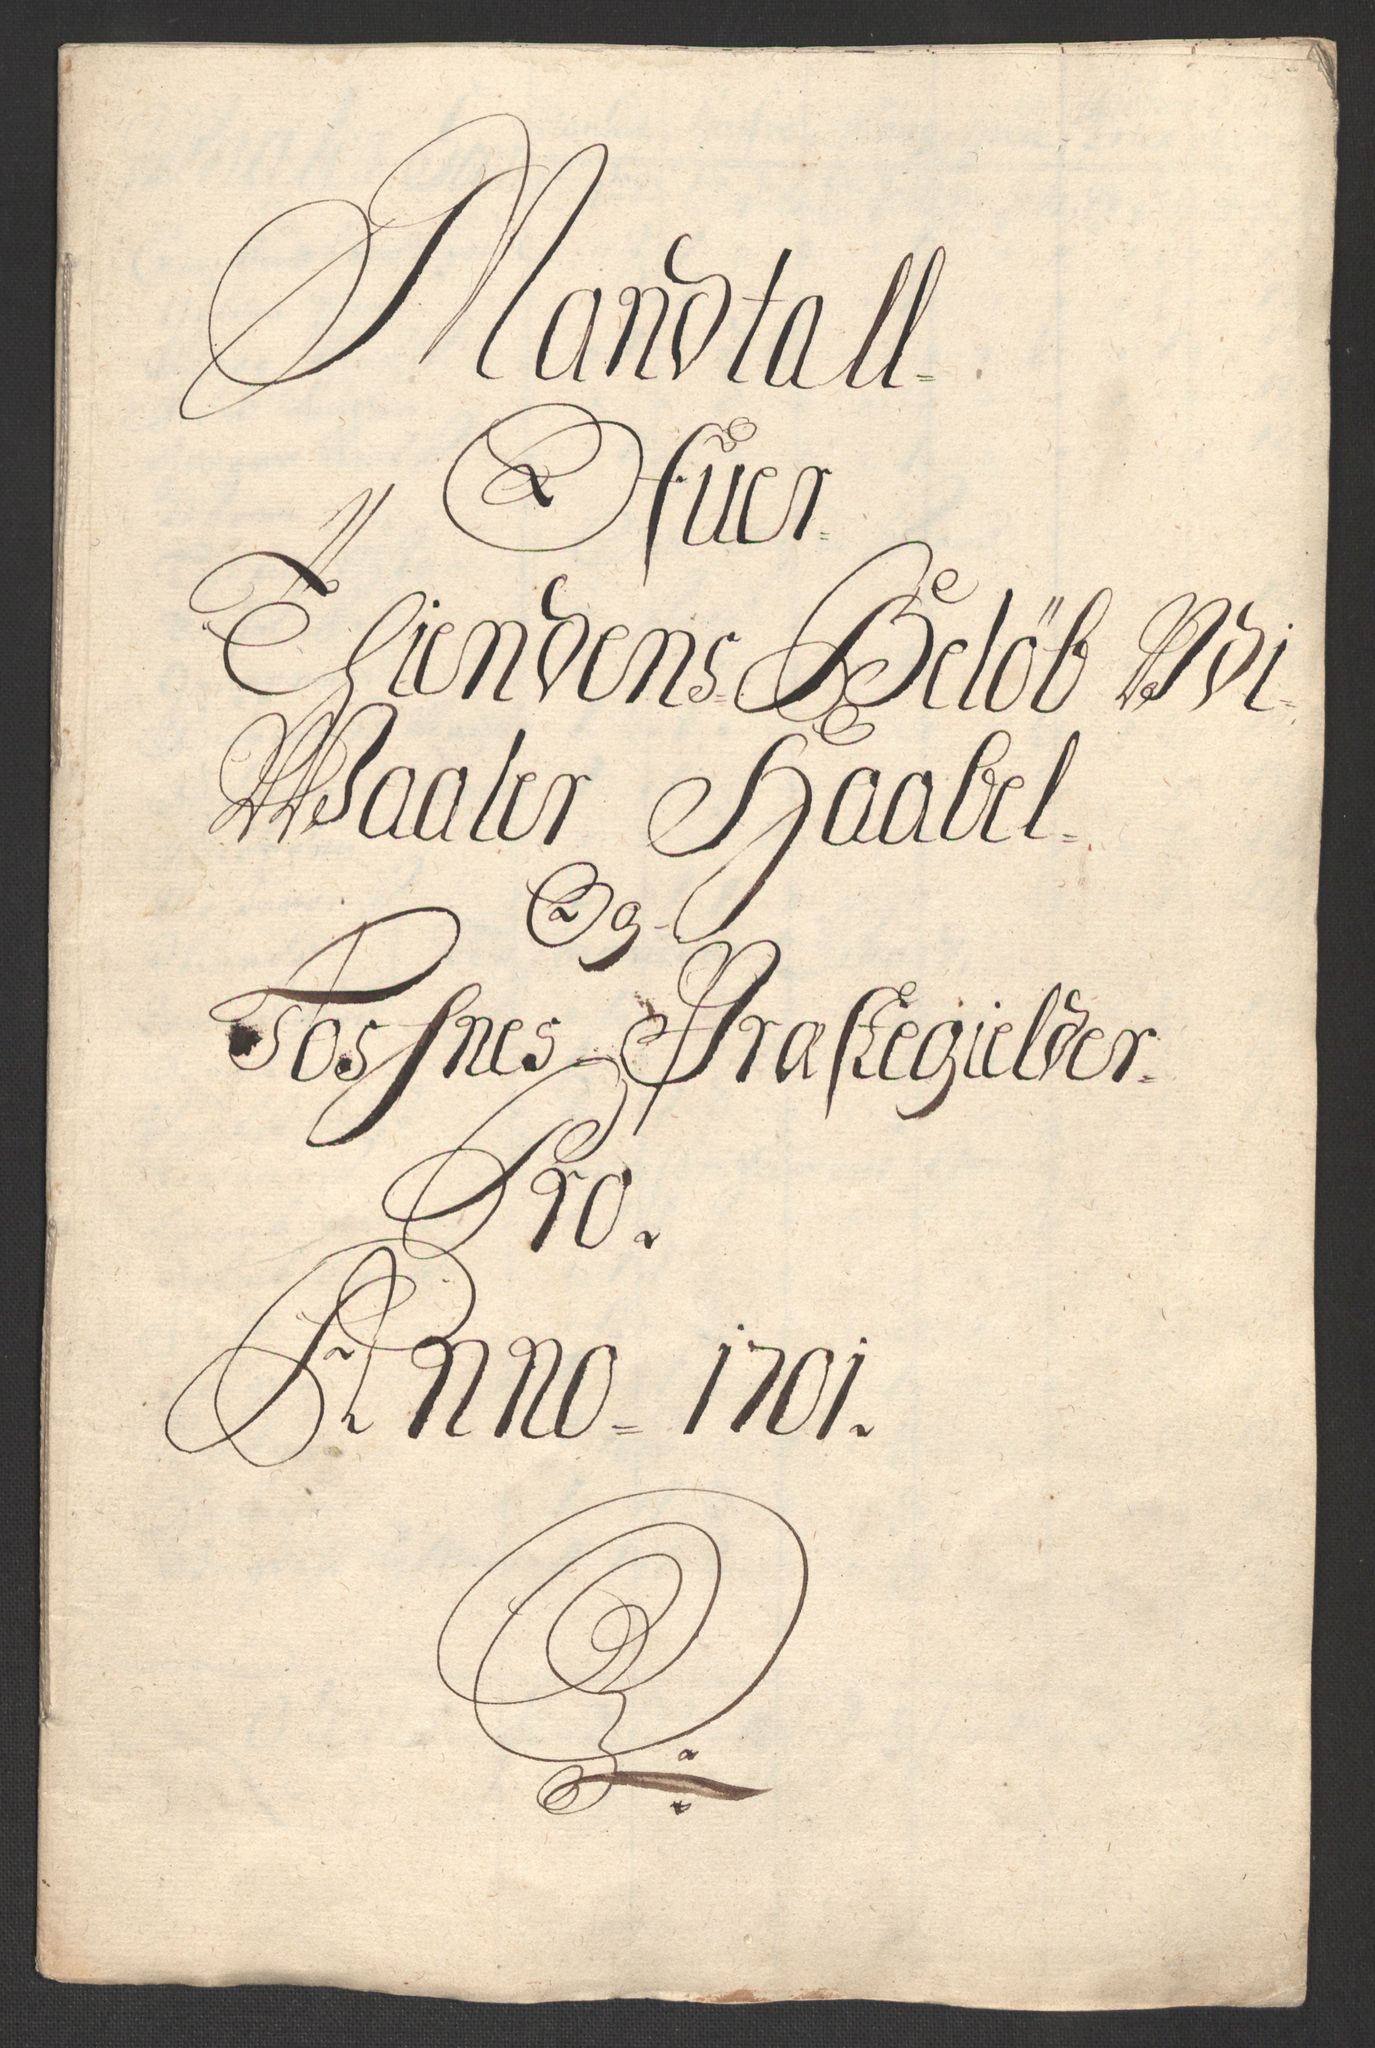 Mandtall
Ofuer
Thiendens Beløb Udi
Waaler Haabel
Og
Tosßnes Præstegielder
Pro
Anno 1701.